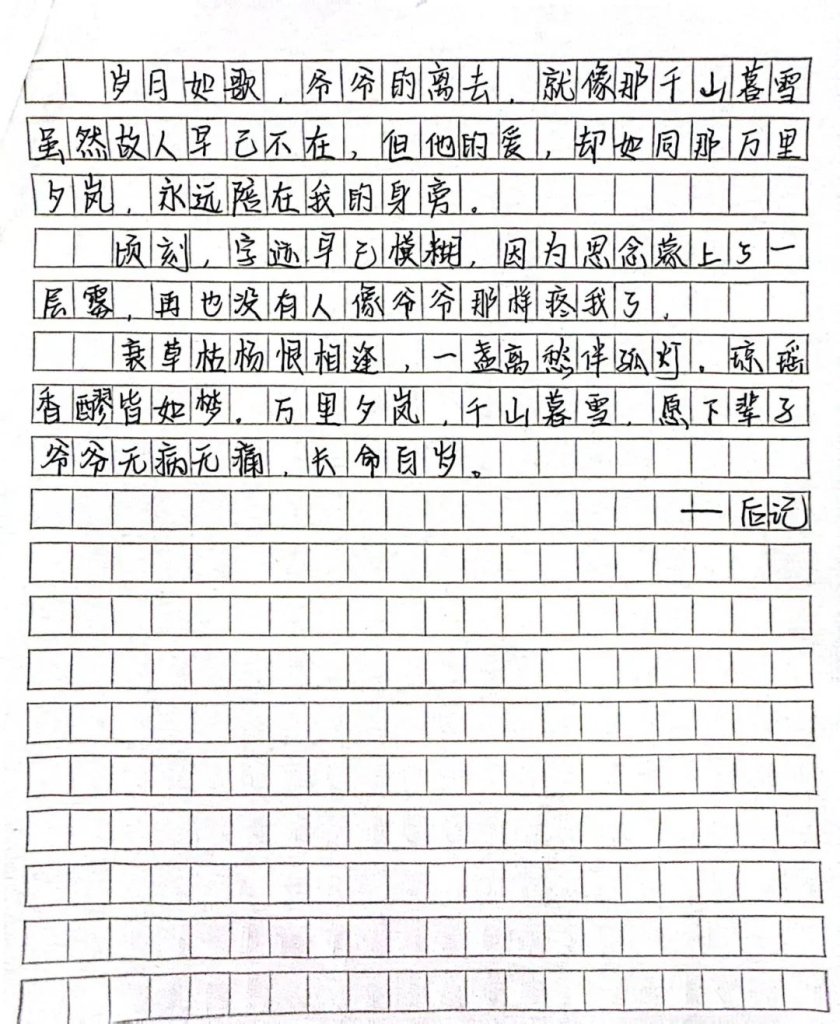 岁月如歌，爷爷的离去，就像那千山暮雪
虽然故人早已不在，但他的爱，却如同那万里
夕岚，永远陪在我的身旁。
顷刻，字迹早已模糊，因为思念蒙上了一
层雾，再也没有人像爷爷那样疼我了，
衰草枯杨恨相逢，一盏离愁伴孤灯。琼瑶
香醪皆如梦。万里夕岚，千山暮雪，愿下辈子
爷爷无病无痛，长命百岁。
——后记